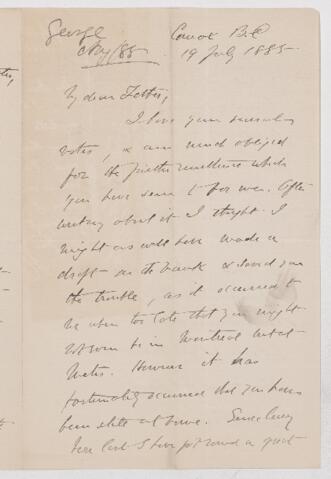 George
Aug/85
19 July 1885
My dear Father,
I have your
notes, & am much obliged
for the further remittance which
you have sent to for me. After
writing about it I thought I
might as well have made a
draft on the bank & saved you
the trouble, as it occurred to
me when too late that you might
not be in Montreal
However it has
fortunately occurred that you have
been at home. Since
here last I have got round a great